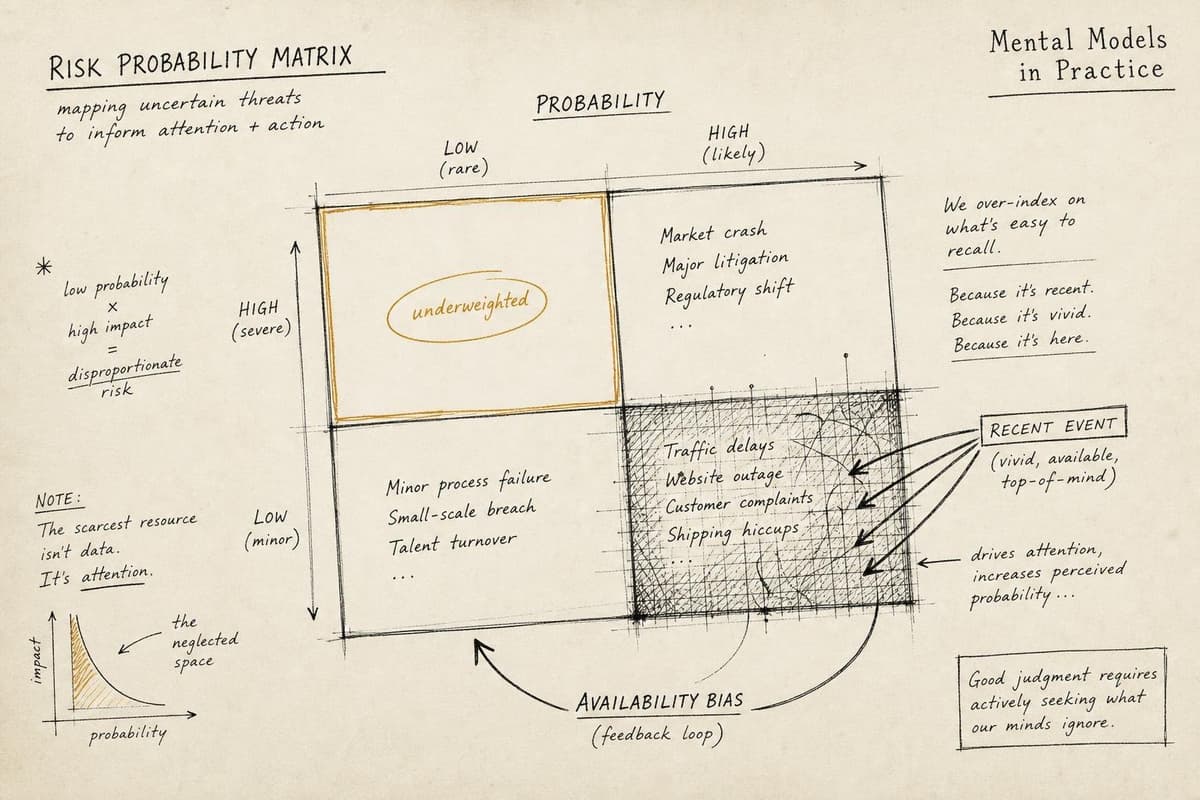 RISK PROBABILITY MATRIX
mapping uncertain threats
to inform attention + action
Mental Models
in Practice
PROBABILITY
LOW
(rare)
HIGH
(likely)
HIGH
(severe)
LOW
(minor)
underweighted
Market crash
Major litigation
Regulatory shift
...
Minor process failure
Small-scale breach
Talent turnover
...
Traffic delays
Website outage
Customer complaints
Shipping hiccups
...
*
low probability
×
high impact
=
disproportionate
risk
NOTE:
The scarcest resource
isn't data.
It's attention.
impact
the
neglected
space
probability
We over-index on
what's easy to
recall.
Because it's recent.
Because it's vivid.
Because it's here.
RECENT EVENT
(vivid, available,
top-of-mind)
drives attention,
increases perceived
probability...
AVAILABILITY BIAS
(feedback loop)
Good judgment requires
actively seeking what
our minds ignore.